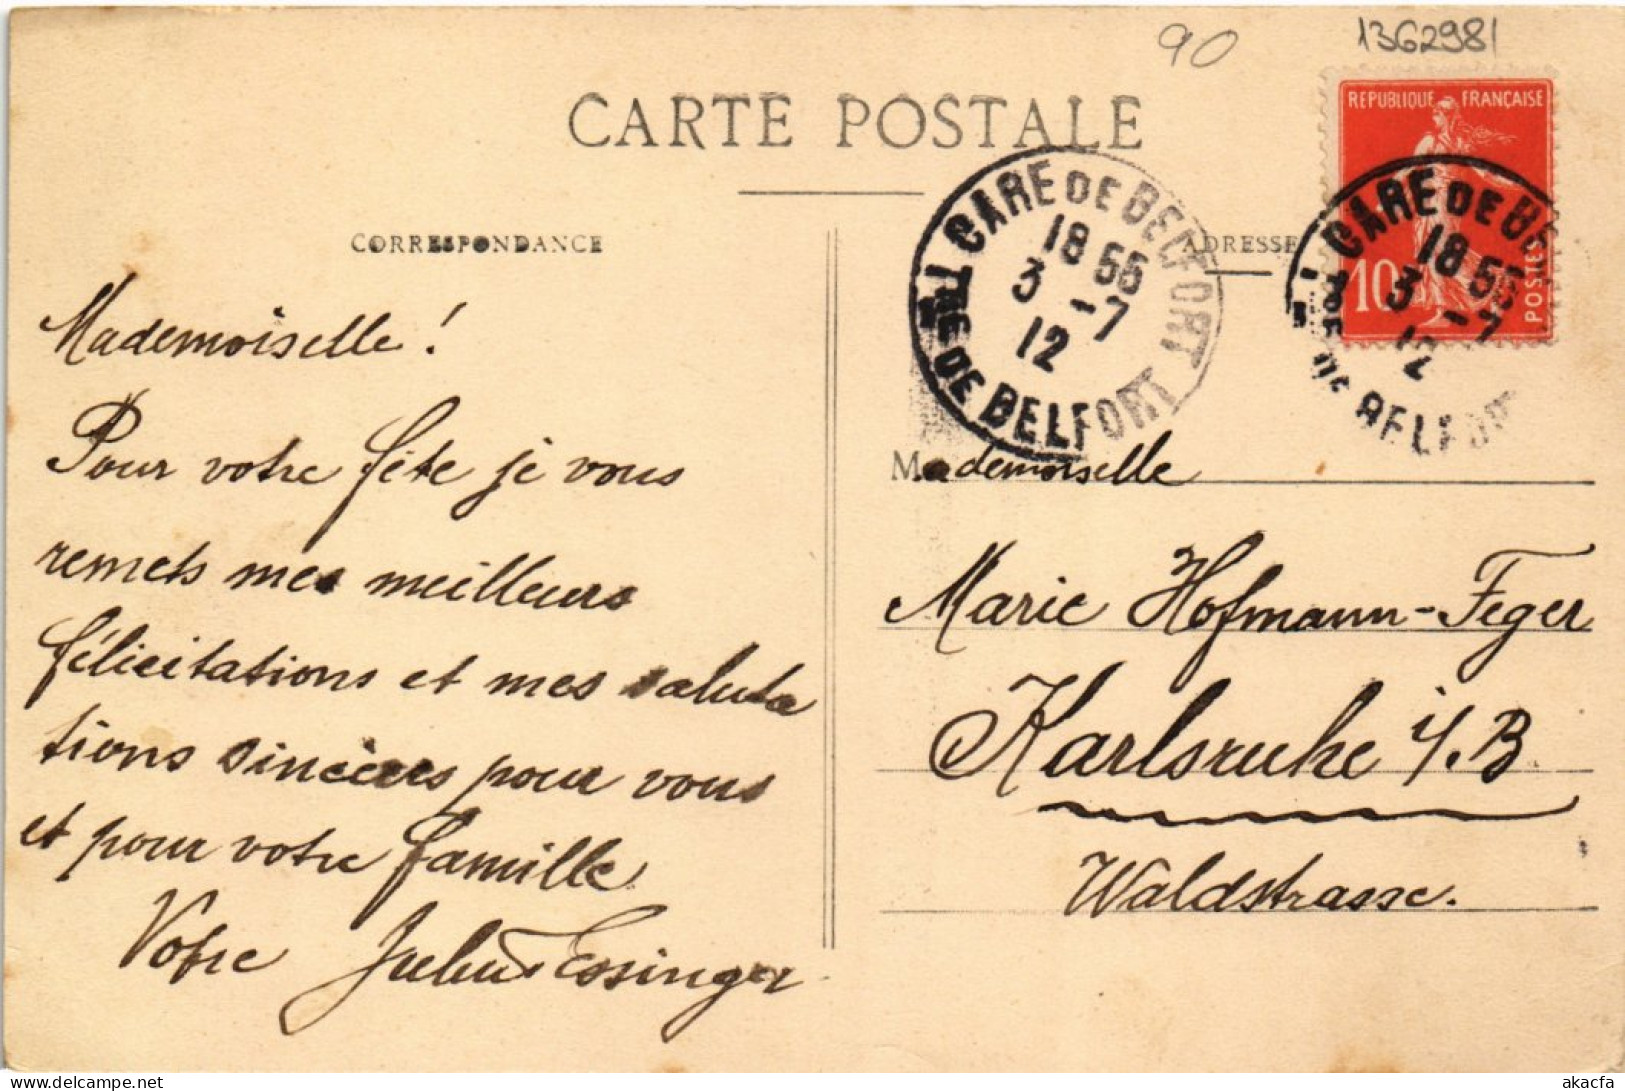 90
1362981
CARTE POSTALE
REPUBLIQUE FRANÇAISE
10
POSTES
GARE DE BELFORT
18 55
3 -7
12
TRE DE BELFORT
GARE DE BE
18 55
3 -7
12
DE BELFOR
CORRESPONDANCE
ADRESSE
Mademoiselle!
Pour votre fête je vous
remets mes meilleurs
félicitations et mes saluta
tions sincères pour vous
et pour votre famille
Votre Julius Essinger
Mademoiselle
Marie Hofmann-Feger
Karlsruhe i/.B
Waldstrasse.
akpool.de